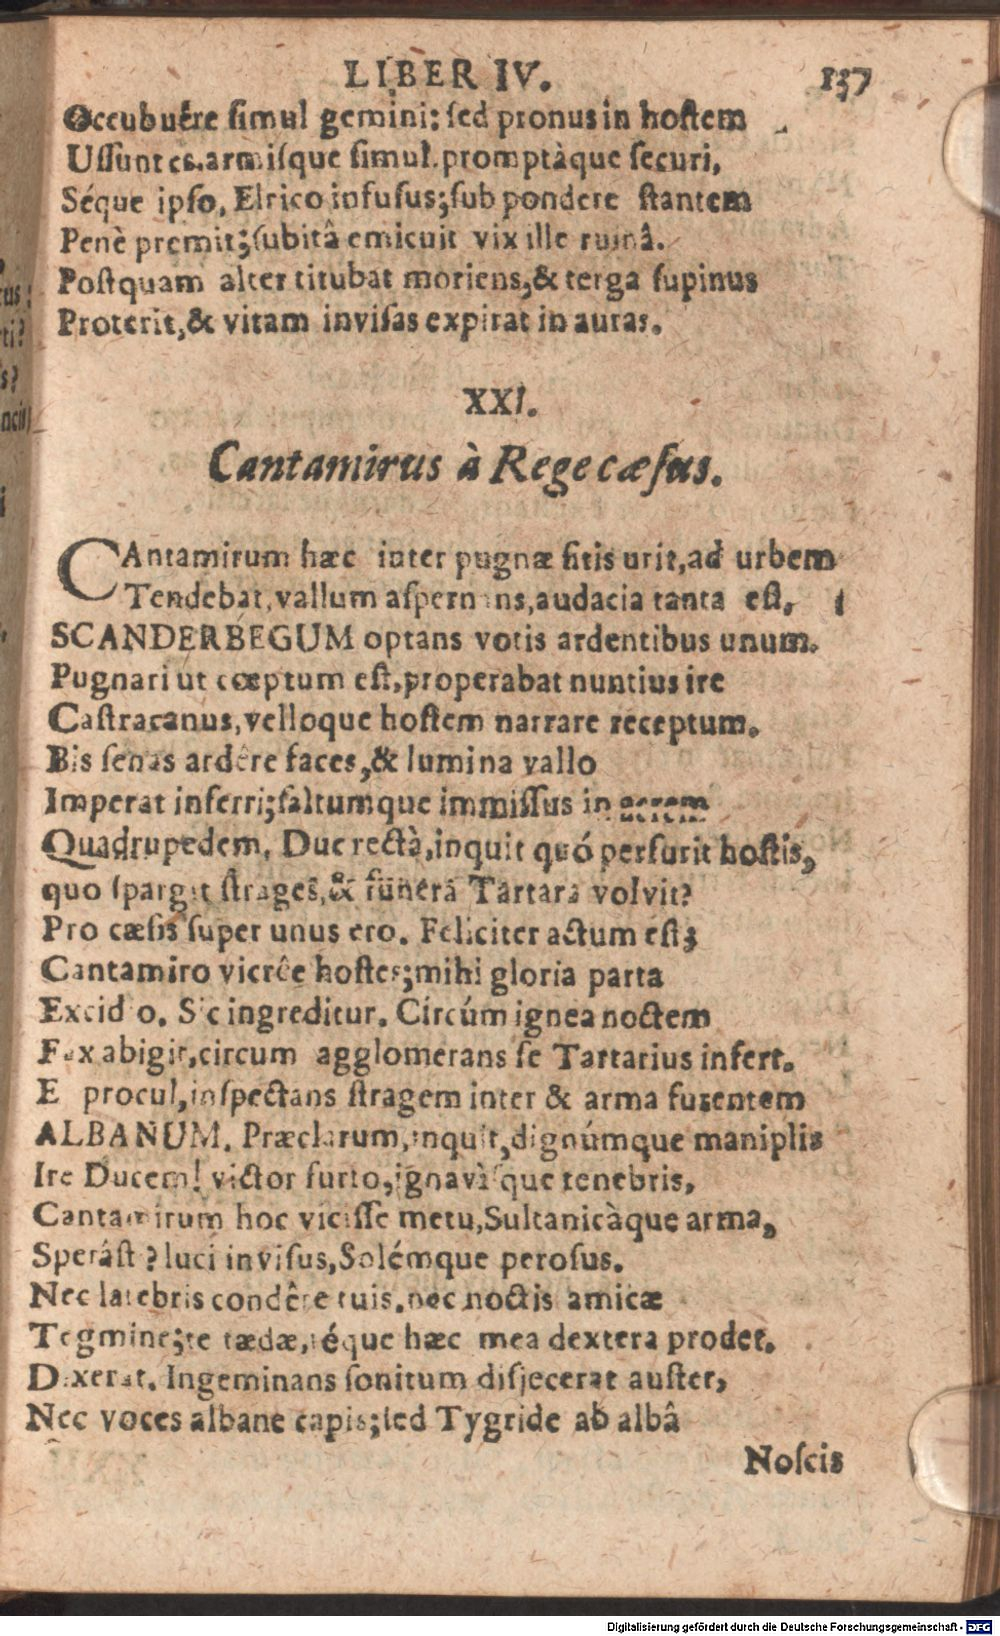 LIBER IV. 157
Occubuére ſimul gemini: ſed pronus in hoſtem
Uſſuntes. armiſque ſimul. promptàque ſecuri,
Séque ipſo, Elrico infuſus; ſub pondere ſtantem
Penè premit; ſubitâ emicuit vix ille ruinâ.
Poſtquam alter titubat moriens, & terga ſupinus
Proterit, & vitam inviſas expirat in auras.
XXI.
Cantamirus à Rege cæſus.
CAntamirum hæc inter pugnæ ſitis urit, ad urbem
Tendebat, vallum aſpernans, audacia tanta eſt,
SCANDERBEGUM optans votis ardentibus unum.
Pugnari ut cœptum eſt, properabat nuntius ire
Caſtracanus, velloque hoſtem narrare receptum.
Bis ſenas ardêre faces, & lumina vallo
Imperat inferri; ſaltumque immiſſus in aerem
Quadrupedem. Duc rectà, inquit quó perfurit hoſtis,
quo ſpargit ſtrages, & funera Tartara volvit?
Pro cæſis ſuper unus ero. Feliciter actum eſt;
Cantamiro vicrêe hoſtes; mihi gloria parta
Excidio. Sic ingreditur. Circúm ignea noctem
Fax abigit, circum agglomerans ſe Tartarius infert.
E procul, inſpectans ſtragem inter & arma furentem
ALBANUM. Præclarum, inquit, dignúmque maniplis
Ire Ducem! victor furto, ignavìſque tenebris,
Cantamirum hoc viciſſe metu, Sultanicàque arma,
Speráſt? luci inviſus, Solémque peroſus.
Nec latebris condêre tuis. nec noctis amicæ
Tegmine; te tædæ, téque hæc mea dextera prodet.
Dixerat. Ingeminans ſonitum disjecerat auſter,
Nec voces albane capis; ſed Tygride ab albâ
Noſcis
Digitalisierung gefördert durch die Deutsche Forschungsgemeinschaft - DFG